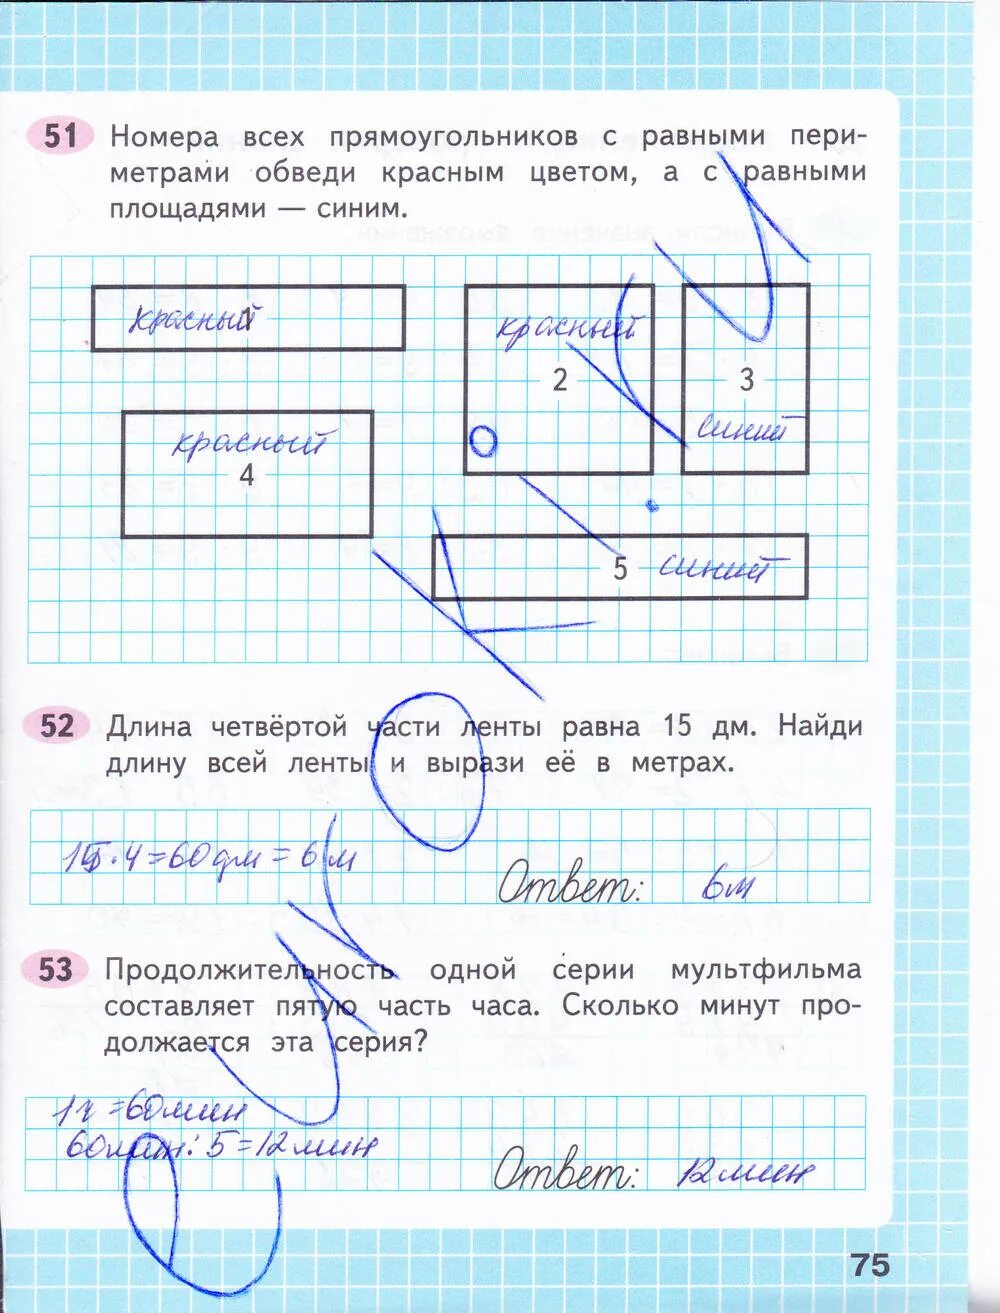 51 Номера всех прямоугольников с равными пери-
метрами обведи красным цветом, а с равными
площадями — синим.
красный 1
красный
2
3
синий
красный
4
5 синий
52 Длина четвёртой части ленты равна 15 дм. Найди
длину всей ленты и вырази её в метрах.
15·4=60дм=6м
Ответ: 6м
53 Продолжительность одной серии мультфильма
составляет пятую часть часа. Сколько минут про-
должается эта серия?
1ч=60мин
60мин:5=12мин
Ответ: 12мин
75